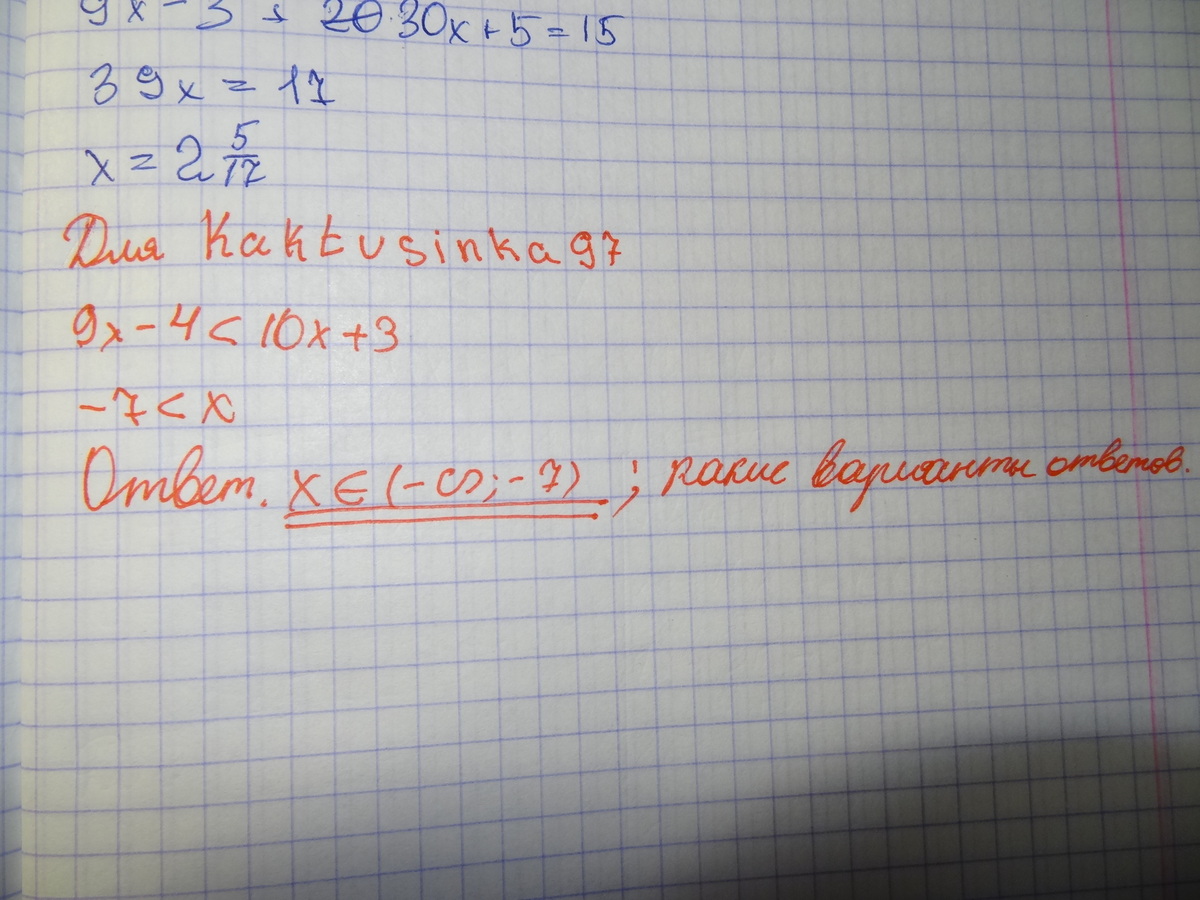 9x - 3 + 30x + 5 = 15
39x = 17
x = 2 5/17
Для Kaktusinka97
9x - 4 < 10x + 3
-7 < x
Ответ. x ∈ (-∞; -7) ; какие варианты ответов.